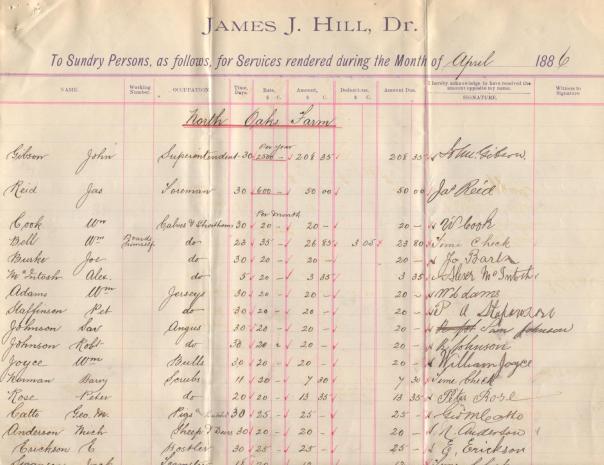 JAMES J. HILL, Dr.
To Sundry Persons, as follows, for Services rendered during the Month of April 1886
I hereby acknowledge to have received the amount opposite my name.
NAME. Working Number. OCCUPATION. Time, Days. Rate, $ C. Amount, $ C. Deductions, $ C. Amount Due. SIGNATURE. Witness to Signature
North Oaks Farm
Per year
Gibson John Superintendent 30 2500 - 208 35 208 35 Jno M. Gibson
Reid Jas Foreman 30 600 - 50 00 50 00 Jas Reid
Per month
Cook Wm Calves & Shorthorns 30 20 - 20 - 20 - W Cook
Bell Wm Boards himself do 23 35 - 26 85 3 05 23 80 Time Check
Burke Joe do 30 20 - 20 - 20 - Jo
McIntosh Alex do 5 20 - 3 35 3 35 McIntosh
Adams Wm Jerseys 30 20 - 20 - 20 - W Adams
Staffinson Pet do 30 20 - 20 - 20 - P A
Johnson Sam Angus 30 20 - 20 - 20 - Sam Johnson
Johnson Robt do 30 20 20 - 20 - R Johnson
Joyce Wm Bulls 30 20 - 20 - 20 - William Joyce
Kernan Barry Scrubs 11 20 - 7 30 7 30 Time Check
Rose Peter do 20 20 - 13 35 13 35 Peter Rose
Catto Geo. M. Pigs 30 25 - 25 - 25 - Geo M Catto
Anderson Mich Sheep & 30 20 - 20 - 20 - Anderson
Erickson E Hostler 30 25 - 25 - 25 - E. Erickson